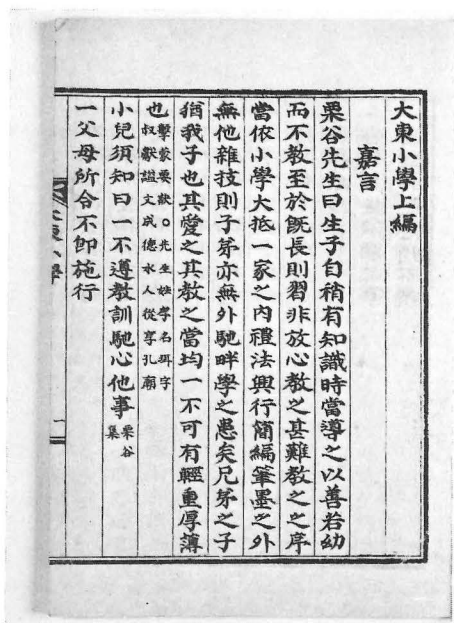 大東小學上編
嘉言
栗谷先生曰生子自稍有知識時當導之以善若幼
而不敎至於旣長則習非放心敎之甚難敎之之序
當依小學大抵一家之內禮法興行簡編筆墨之外
無他雜技則子弟亦無外馳畔學之患矣兄弟之子
猶我子也其愛之其敎之當均一不可有輕重厚薄
也擊蒙要訣○先生姓李名珥字
叔獻諡文成德水人從享孔廟
小兒須知曰一不遵敎訓馳心他事栗谷
集
一父母所令不卽施行
小學
一